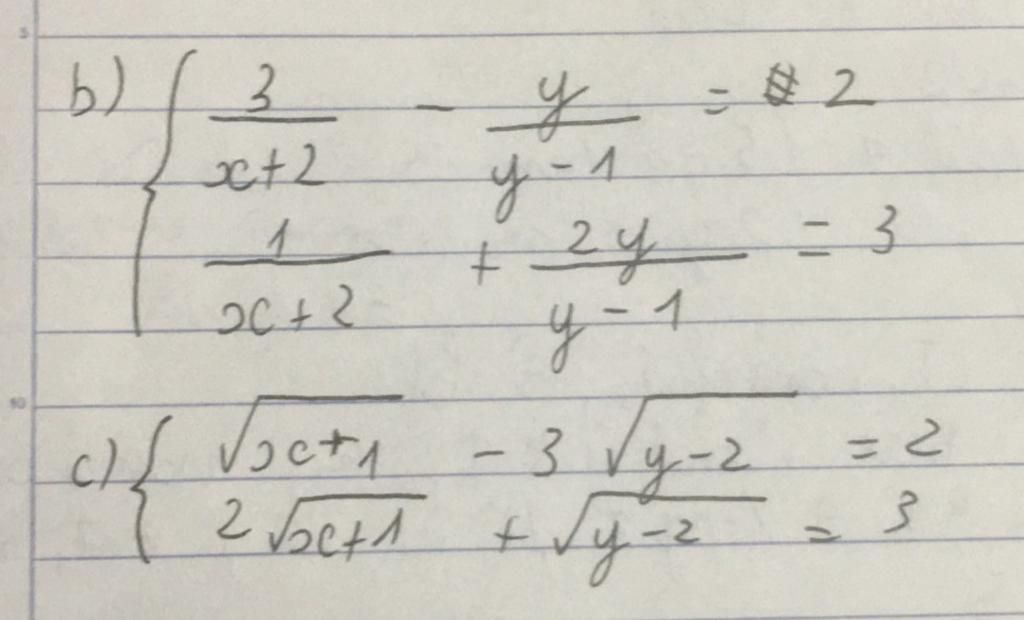 b) { 3/(x+2) - y/(y-1) = 2
1/(x+2) + 2y/(y-1) = 3
c) { √(x+1) - 3√(y-2) = 2
2√(x+1) + √(y-2) = 3